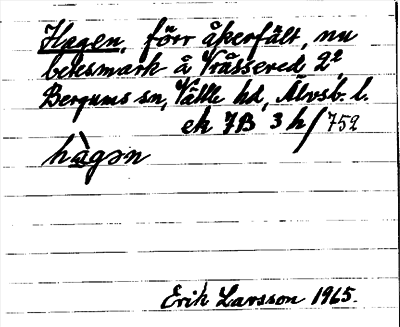 Hagen, förr åkerfält, nu
betesmark å Vråssered 2²,
Bergums sn, Vättle hd, Älvsb. l.
ek 7B 3h/752
hàgən
Erik Larsson 1965.